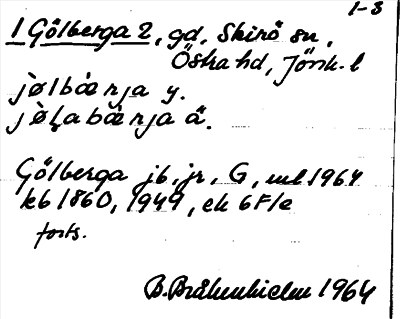 1-3
1 Gölberga 2, gd, Skirö sn,
Östra hd, Jönk. l
jø̀lbæ̀rja y.
jø̀ḷabæ̀rja ä.
Gölberga jb, jr, G, uul 1964
kb 1860, 1949, ek 6F1e
forts.
B. Bråkenhielm 1964